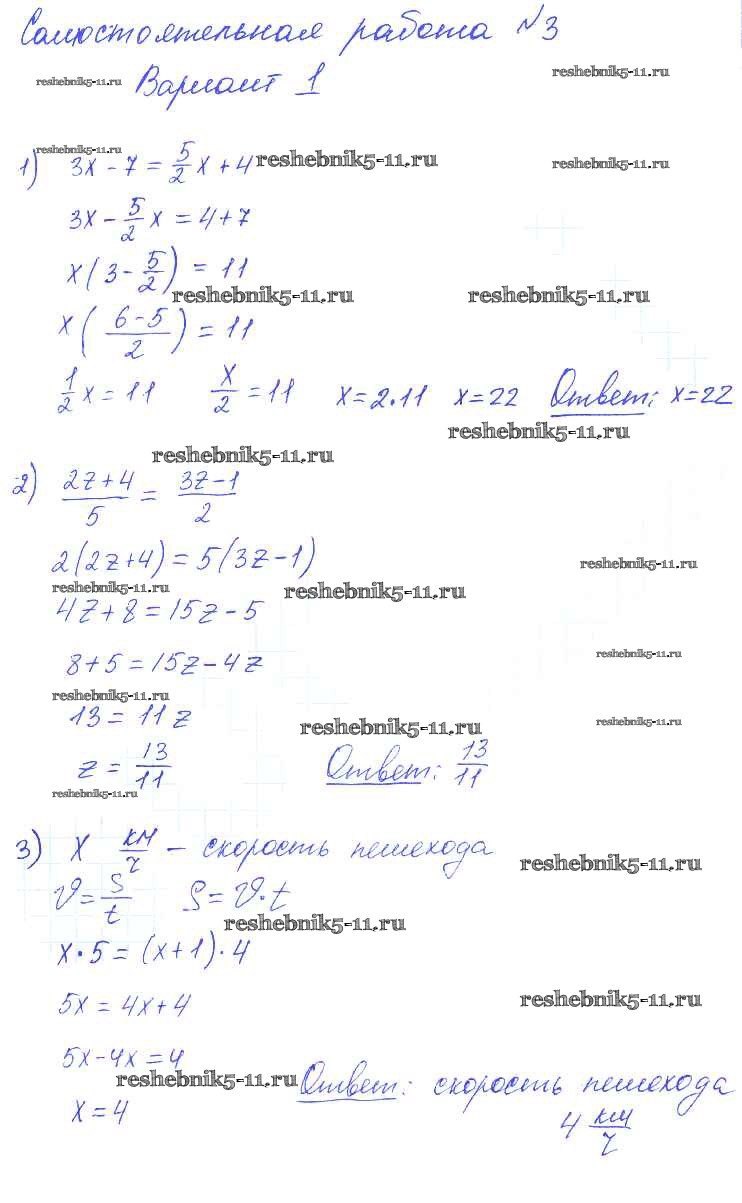 Самостоятельная работа №3
reshebnik5-11.ru Вариант 1 reshebnik5-11.ru
reshebnik5-11.ru
1) 3x - 7 = 5/2 x + 4 reshebnik5-11.ru reshebnik5-11.ru
3x - 5/2 x = 4 + 7
x(3 - 5/2) = 11
reshebnik5-11.ru reshebnik5-11.ru
x((6-5)/2) = 11
1/2 x = 11 x/2 = 11 x = 2·11 x = 22 Ответ: x = 22
reshebnik5-11.ru
reshebnik5-11.ru
2) (2z+4)/5 = (3z-1)/2
2(2z+4) = 5(3z-1) reshebnik5-11.ru
reshebnik5-11.ru reshebnik5-11.ru
4z + 8 = 15z - 5
8 + 5 = 15z - 4z reshebnik5-11.ru
reshebnik5-11.ru
13 = 11z reshebnik5-11.ru reshebnik5-11.ru
z = 13/11 Ответ: 13/11
reshebnik5-11.ru
3) x км/ч - скорость пешехода reshebnik5-11.ru
v = S/t S = v·t
reshebnik5-11.ru
x·5 = (x+1)·4
5x = 4x + 4 reshebnik5-11.ru
5x - 4x = 4
reshebnik5-11.ru Ответ: скорость пешехода
x = 4 4 км/ч